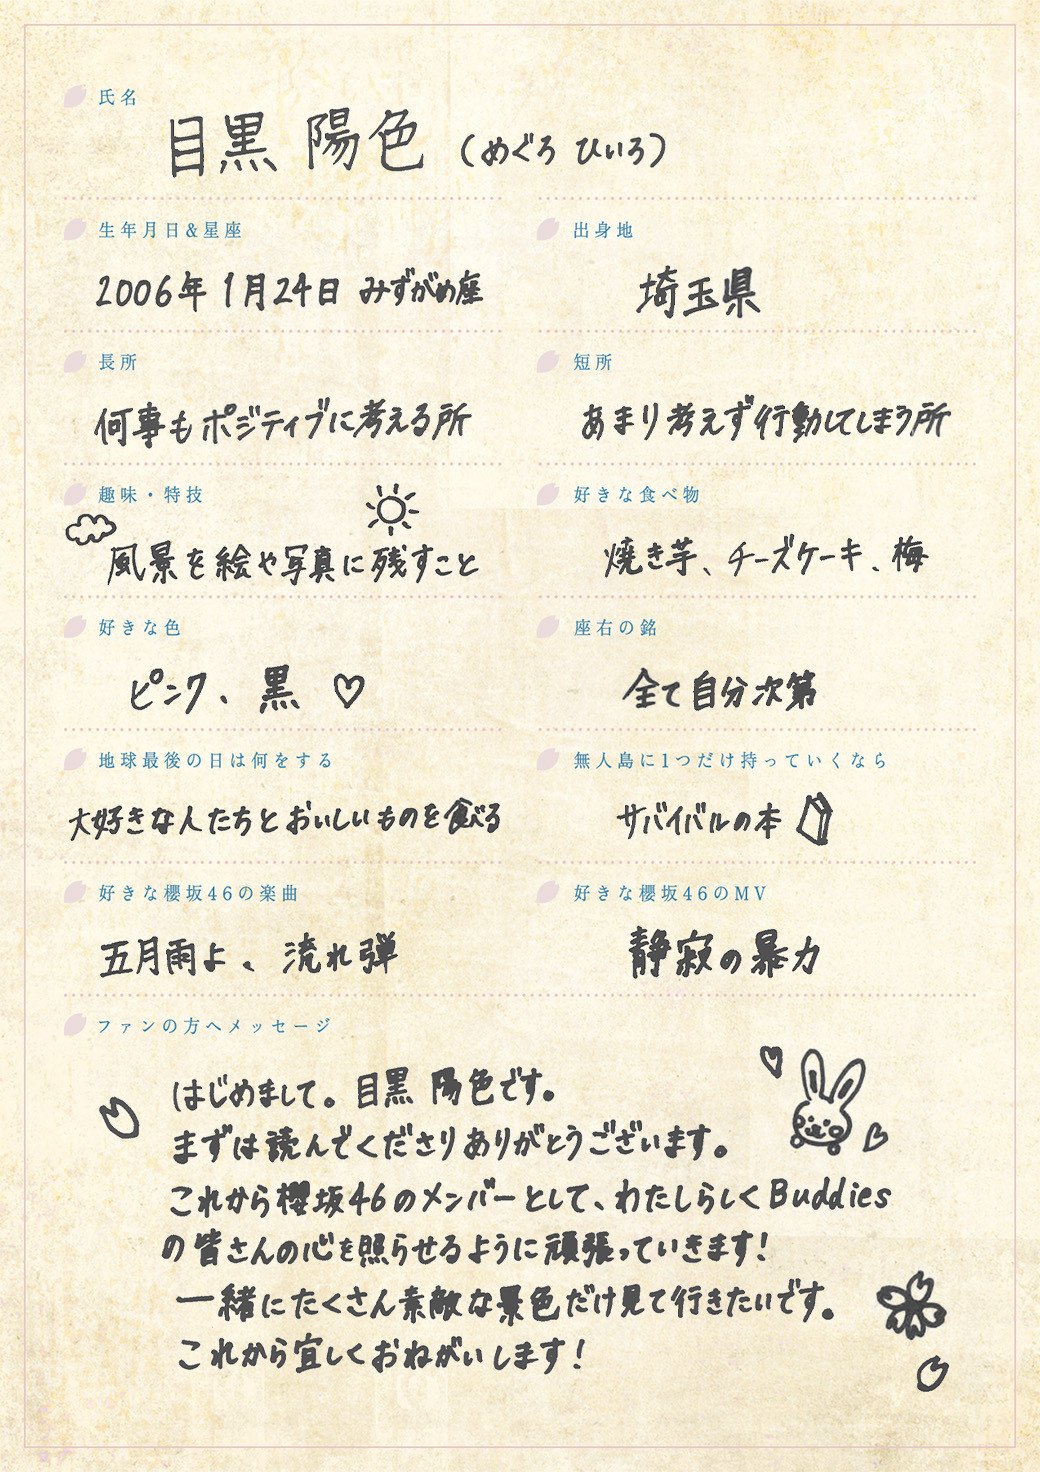 氏名
目黒 陽色 (めぐろ ひいろ)
生年月日&星座
2006年 1月24日 みずがめ座
出身地
埼玉県
長所
何事もポジティブに考える所
短所
あまり考えず行動してしまう所
趣味・特技
風景を絵や写真に残すこと
好きな食べ物
焼き芋、チーズケーキ、梅
好きな色
ピンク、黒 ♡
座右の銘
全て自分次第
地球最後の日は何をする
大好きな人たちとおいしいものを食べる
無人島に1つだけ持っていくなら
サバイバルの本
好きな櫻坂46の楽曲
五月雨よ、流れ弾
好きな櫻坂46のMV
静寂の暴力
ファンの方へメッセージ
はじめまして。目黒 陽色です。
まずは読んでくださりありがとうございます。
これから櫻坂46のメンバーとして、わたしらしくBuddies
の皆さんの心を照らせるように頑張っていきます!
一緒にたくさん素敵な景色だけ見て行きたいです。
これから宜しくおねがいします!